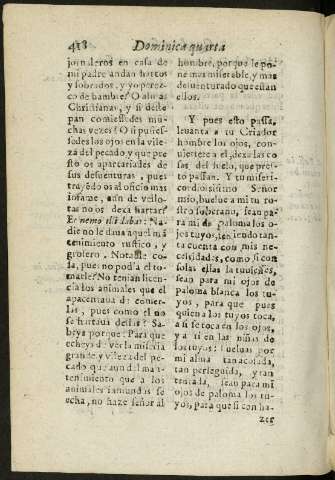 418 Dominica quarta
jornaleros en casa de
mi padre andan hartos
y sobrados, y yo perez-
co de hambre? O almas
Christianas, y si desto
pan comiessedes mu-
chas vezes! O si pusies-
sedes los ojos en la vile-
za del pecado y que pres
to os apartariades
de sus desuenturas, pues
trayẽdo os al oficio mas
infame, aun de vello-
tas no os dexa hartar?
Et nemo illi dabat: Na-
die no le daua aquel mã
tenimiento rustico, y
grosero. Notable co-
sa, pues no podia el to-
marle? No tenian licen-
cia los animales que el
apacentaua de comer-
las, pues como el no
se hartaua dellas? Sa-
beys porque? Para que
echeys de ver la miseria
grande y vileza del pe-
cado que aun del man-
tenimiento que a los
animales inmundos se
echa, no haze señor al
hombre, porque le po-
ne mas miserable, y mas
desuenturado que estan
ellos.
Y pues esto passa,
leuanta a tu Criador
hombre los ojos, con-
uiertete a el, dexa las co
sas del suelo, que pres-
to passan. Y tu miseri-
cordiosissimo Señor
mio, buelue a mi tu ro-
stro soberano, sean pa-
ra mi de paloma los o-
jos tuyos, teniendo tan-
ta cuenta con mis ne-
cessidades, como si con
solas ellas la tuuiesses,
sean para mi ojos de
paloma blanca los tu-
yos, para que pues
quien a los tuyos toca,
a ti se toca en los ojos,
y a ti en las niñas de
los tuyos: bueluas por
mi alma tan acosada,
tan perseguida, y tan
tentada, sean para mi
ojos de paloma los tu-
yos, para que si con ha-
zer